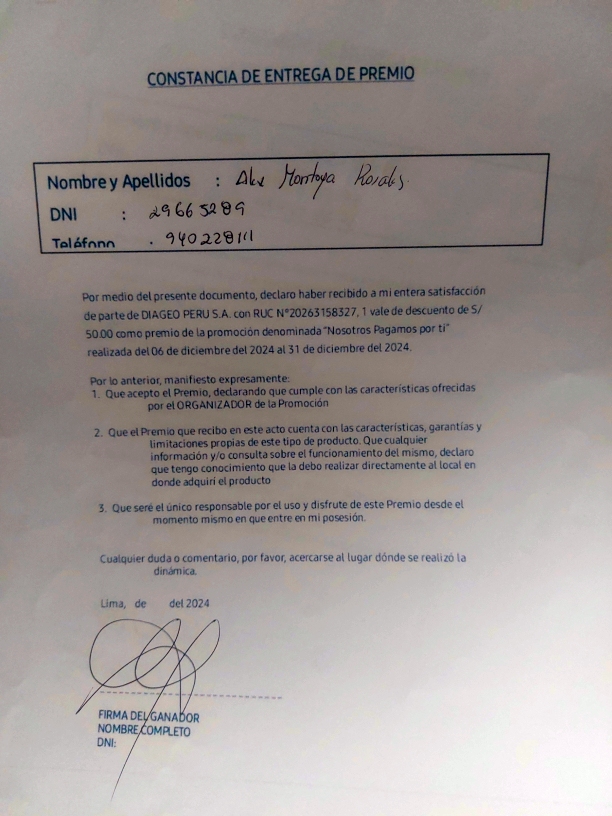 CONSTANCIA DE ENTREGA DE PREMIO
Nombre y Apellidos : Alex Montoya Rosales
DNI : 29665289
Teléfono . 940228111
Por medio del presente documento, declaro haber recibido a mi entera satisfacción
de parte de DIAGEO PERU S.A. con RUC N°20263158327, 1 vale de descuento de S/
50.00 como premio de la promoción denominada "Nosotros Pagamos por ti"
realizada del 06 de diciembre del 2024 al 31 de diciembre del 2024.
Por lo anterior, manifiesto expresamente:
1. Que acepto el Premio, declarando que cumple con las características ofrecidas
por el ORGANIZADOR de la Promoción
2. Que el Premio que recibo en este acto cuenta con las características, garantías y
limitaciones propias de este tipo de producto. Que cualquier
información y/o consulta sobre el funcionamiento del mismo, declaro
que tengo conocimiento que la debo realizar directamente al local en
donde adquirí el producto
3. Que seré el único responsable por el uso y disfrute de este Premio desde el
momento mismo en que entre en mi posesión.
Cualquier duda o comentario, por favor, acercarse al lugar dónde se realizó la
dinámica.
Lima, de del 2024
FIRMA DEL GANADOR
NOMBRE COMPLETO
DNI: